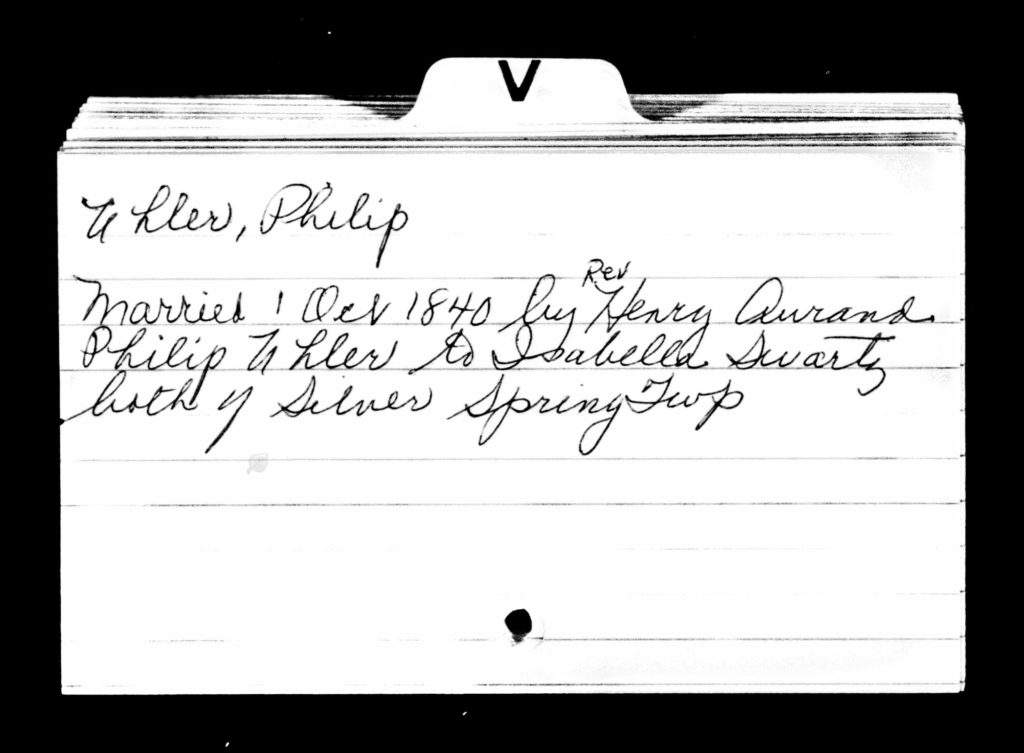 V
Uhler, Philip
Rev
Married 1 Oct 1840 by Henry Aurand
Philip Uhler to Isabella Swartz
both of Silver Spring Twp